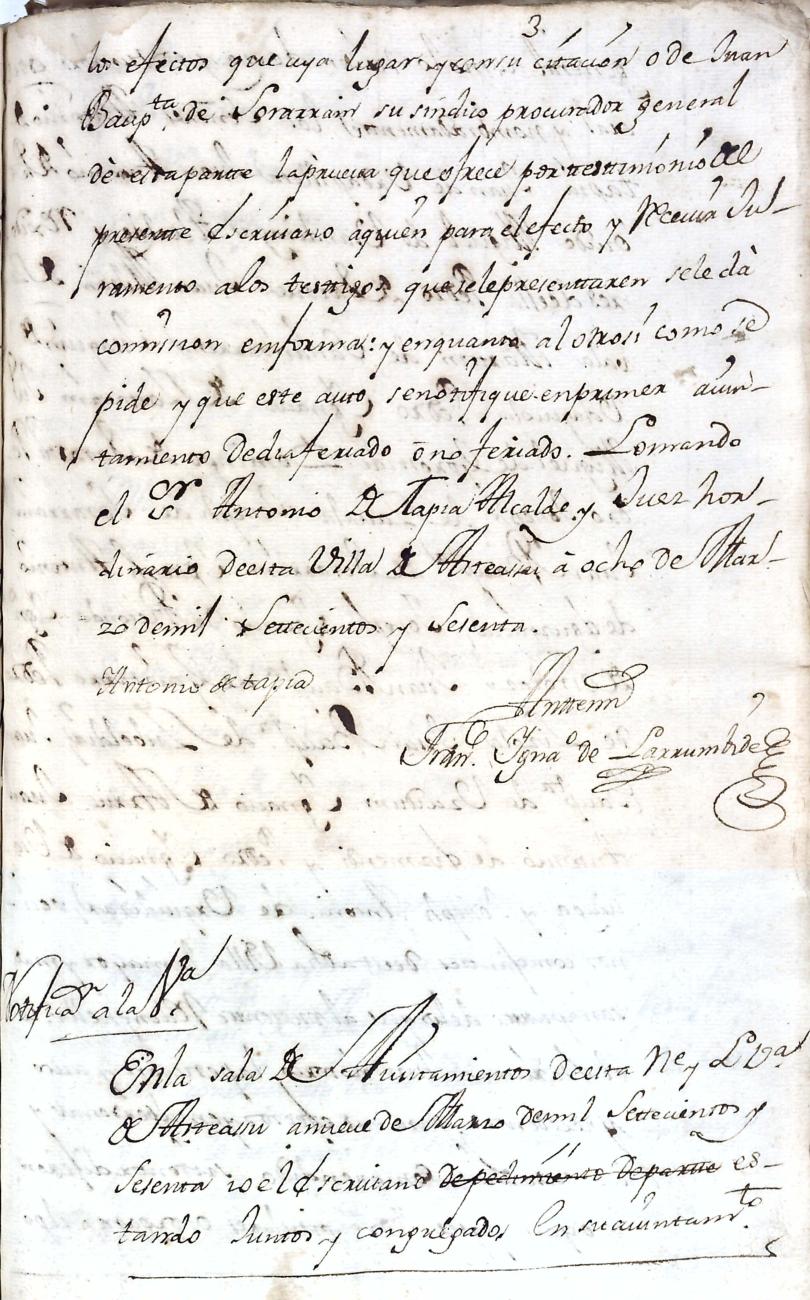 3
los efectos que aya lugar y con su citación o de Juan
Baupta. de Sorarrain su sindico procurador general
dè esta partte la prueva que ofrece por testtimonio del
presentte Escruiano aquien para el efecto y Receuir Ju-
ramento alos testtigos que sele presenttaren sele dà
comission en forma: y en quanto al otrosi como se
pide y que este auto, se notifique en primer aiun-
tamiento De dia feriado ō no feriado. Lo mando
el Sr Antonio de Tapia Alcalde y Juez hor-
dinario de esta Villa de Asteasu à ocho de Mar-
zo de mil Settecientos y Sesenta.
Antonio de tapia
Anttemi
Fran.co Ygna.o de Larrumbide
Notificazn a la Va
En la sala de Aiuntamientos de esta Ne y L Va.
de Asteasu a nueve de Marzo de mil Settecientos y
Sesenta io el Escruiano de pedimiento de partte es-
tando Juntos y congregados En su aiuntamto.